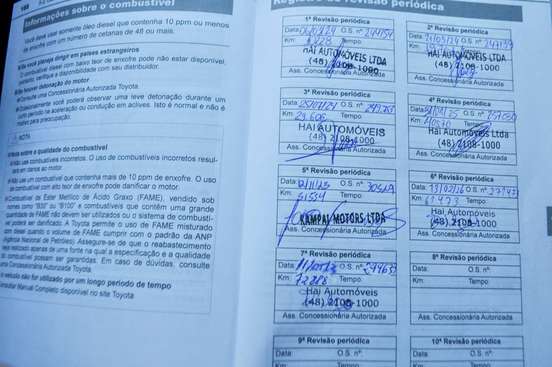 188
Informações sobre o combustível
Você deve usar somente óleo diesel que contenha 10 ppm ou menos
de enxofre com um número de cetanas de 48 ou mais.
Se você planeja dirigir em países estrangeiros
O combustível diesel com baixo teor de enxofre pode não estar disponível,
portanto, verifique a disponibilidade com seu distribuidor.
Se houver detonação do motor
Consulte uma Concessionária Autorizada Toyota.
Ocasionalmente você poderá observar uma leve detonação durante um
curto período na aceleração ou condução em aclives. Isto é normal e não é
motivo para preocupação.
NOTA
Nota sobre a qualidade do combustível
Não use combustíveis incorretos. O uso de combustíveis incorretos resul-
tará em danos ao motor.
Não use um combustível que contenha mais de 10 ppm de enxofre. O uso
de combustível com alto teor de enxofre pode danificar o motor.
Combustível de Éster Metílico de Ácido Graxo (FAME), vendido sob
nomes como "B30" ou "B100" e combustíveis que contêm uma grande
quantidade de FAME não devem ser utilizados ou o sistema de combustí-
vel poderá ser danificado. A Toyota permite o uso de FAME misturado
com diesel quando o volume de FAME cumprir com o padrão da ANP
(Agência Nacional de Petróleo). Assegure-se de que o reabastecimento
seja realizado apenas de uma fonte na qual a especificação e a qualidade
do combustível possam ser garantidas. Em caso de dúvidas, consulte
uma Concessionária Autorizada Toyota.
Se o veículo não for utilizado por um longo período de tempo
Consultar Manual Completo disponível no site Toyota
Registro de revisão periódica
1ª Revisão periódica
Data: O.S. nº
Km: Tempo
HAI AUTOMÓVEIS
(48) 2108-1000
Ass. Concessionária Autorizada
2ª Revisão periódica
Data: O.S. nº
Km: Tempo
Hai Automóveis Ltda
(48) 2108-1000
Ass. Concessionária Autorizada
3ª Revisão periódica
Data: O.S. nº
Km: Tempo
HAI AUTOMÓVEIS
(48) 2108-1000
Ass. Concessionária Autorizada
4ª Revisão periódica
Data: O.S. nº
Km: Tempo
Hai Automóveis Ltda
(48) 2108-1000
Ass. Concessionária Autorizada
5ª Revisão periódica
Data: O.S. nº
Km: 51534 Tempo
KAMPAI MOTORS LTDA
Ass. Concessionária Autorizada
6ª Revisão periódica
Data: O.S. nº
Km: Tempo
Hai Automóveis
(48) 2108-1000
Ass. Concessionária Autorizada
7ª Revisão periódica
Data: O.S. nº
Km: Tempo
Hai Automóveis
(48) 2108-1000
Ass. Concessionária Autorizada
8ª Revisão periódica
Data: O.S. nº:
Km: Tempo
Ass. Concessionária Autorizada
9ª Revisão periódica
Data: O.S. nº:
Km: Tempo
10ª Revisão periódica
Data: O.S. nº:
Km: Tempo